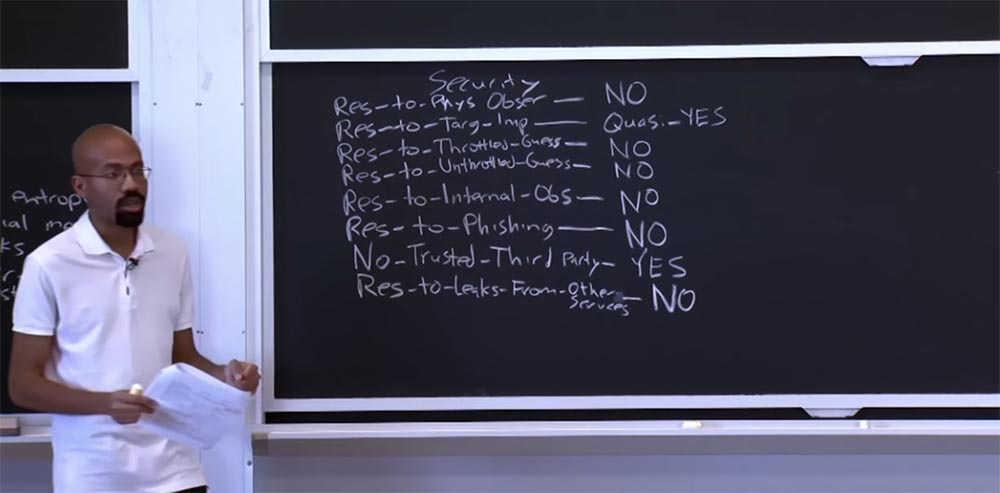 Security
Res-to-Phys Obser — NO
Res-to-Targ-Imp — Quasi-YES
Res-to-Throttled-Guess — NO
Res-to-Unthrottled-Guess — NO
Res-to-Internal-Obs — NO
Res-to-Phishing — NO
No-Trusted-Third Party — YES
Res-to-Leaks-From-Other — NO
Services
entrop